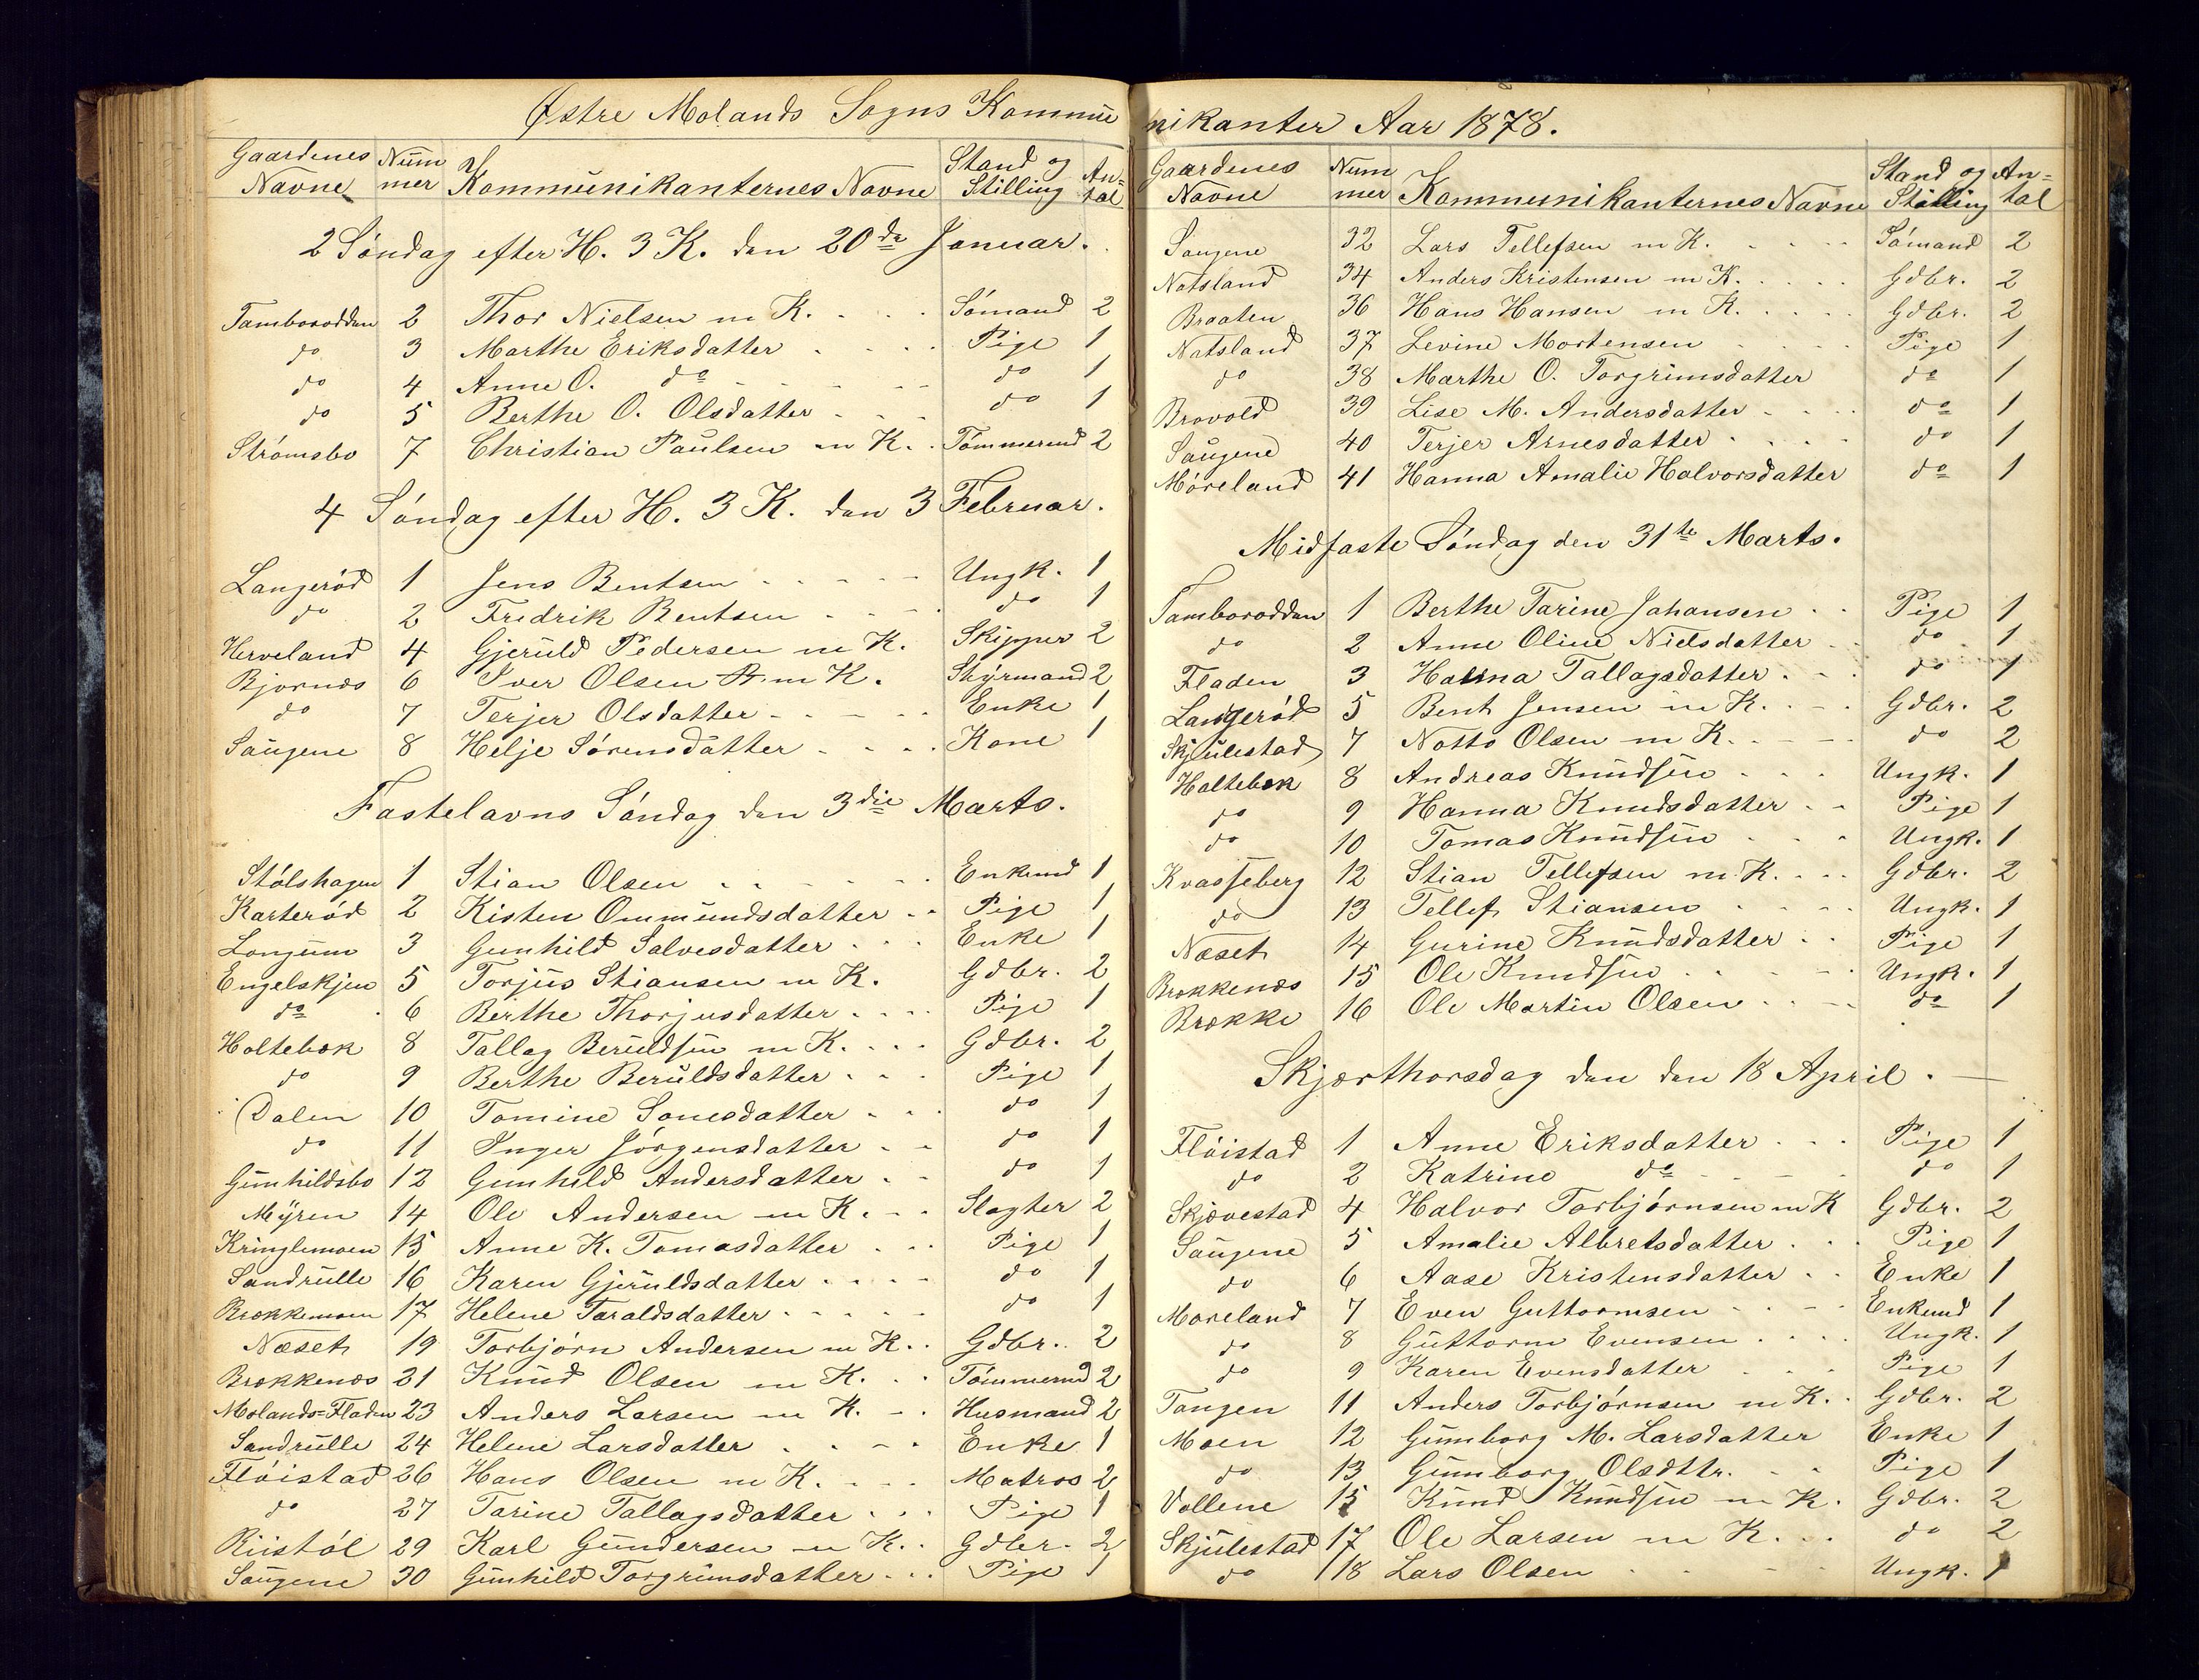 Østre Molands Sogns Kommunikanter Aar 1878.
Gaardenes Navne Nummer Kommunikanternes Navne Stand og Stilling Antal
2 Søndag efter H. 3 K. den 20de Januar.
Tamborodden 2 Thor Nielsen m K. Sømand 2
do 3 Marthe Eriksdatter Pige 1
do 4 Anne O. do do 1
do 5 Berthe O. Olsdatter do 1
Strømsbo 7 Christian Paulsen m K. Tømmermd 2
4 Søndag efter H. 3 K. den 3 Februar.
Langerød 1 Jens Bentsen Ungk. 1
do 2 Fredrik Bentsen do 1
Herveland 4 Gjeruld Pedersen m K. Skipper 2
Bjornæs 6 Iver Olsen m K. Styrmand 2
do 7 Terjer Olsdatter Enke 1
Saugene 8 Helje Sørensdatter Kone 1
Fastelavns Søndag den 3die Marts.
Stølshagen 1 Stian Olsen Enkemd 1
Karterød 2 Kisten Ommundsdatter Pige 1
Longum 3 Gunhild Salvesdatter Enke 1
Engelskjen 5 Torjus Stiansen m K. Gdbr. 2
do 6 Berthe Thorjusdatter Pige 1
Holtebæk 8 Tallag Beruldsen m K. Gdbr. 2
do 9 Berthe Beruldsdatter Pige 1
Dalen 10 Tomine Sonesdatter do 1
do 11 Inger Jørgensdatter do 1
Gunhildsbo 12 Gunhild Andersdatter do 1
Myren 14 Ole Andersen m K. Slagter 2
Kringlemoen 15 Anne K. Tomasdatter Pige 1
Sandrulle 16 Karen Gjeruldsdatter do 1
Brækkemoen 17 Helene Taraldsdatter do 1
Næset 19 Torbjørn Andersen m K. Gdbr. 2
Brækkenæs 21 Knud Olsen m K. Tømmermd 2
Molands=Fladen 23 Anders Larsen m K. Husmand 2
Sandrulle 24 Helene Larsdatter Enke 1
Fløistad 26 Hans Olsen m K. Matros 2
do 27 Tarine Tallagsdatter Pige 1
Riistøl 29 Karl Gundersen m K. Gdbr. 2
Saugene 30 Gunhild Torgrimsdatter Pige 1
Gaardenes Navne Nummer Kommunikanternes Navne Stand og Stilling Antal
Saugene 32 Lars Tellefsen m K. Sømand 2
Natsland 34 Anders Kristensen m K. Gdbr. 2
Braaten 36 Hans Hansen m K. Gdbr. 2
Natsland 37 Levine Mortensen Pige 1
do 38 Marthe O. Torgrimsdatter do 1
Brovold 39 Lise M. Andersdatter do 1
Saugene 40 Terjer Arnesdatter do 1
Møreland 41 Hanna Amalie Halvorsdatter do 1
Midfaste Søndag den 31te Marts.
Tamborodden 1 Berthe Tarine Johansen Pige 1
do 2 Anne Oline Nielsdatter do 1
Fladen 3 Hanna Tallagsdatter do 1
Langerød 5 Bent Jensen m K. Gdbr. 2
Skjulestad 7 Notto Olsen m K. do 2
Holtebæk 8 Andreas Knudsen Ungk. 1
do 9 Hanna Knudsdatter Pige 1
do 10 Tomas Knudsen Ungk. 1
Kvasseberg 12 Stian Tellefsen m K. Gdbr. 2
do 13 Tellef Stiansen Ungk. 1
Næset 14 Gurine Knudsdatter Pige 1
Brækkenæs 15 Ole Knudsen Ungk. 1
Brække 16 Ole Martin Olsen do 1
Skjærthorsdag den den 18 April.
Fløistad 1 Anne Eriksdatter Pige 1
do 2 Katrine do do 1
Skjævestad 4 Halvor Torbjørnsen m K Gdbr. 2
Saugene 5 Amalie Albretsdatter Pige 1
do 6 Aase Kristensdatter Enke 1
Moreland 7 Even Guttormsen Enkemd 1
do 8 Guttorm Evensen Ungk. 1
do 9 Karen Evensdatter Pige 1
Tangen 11 Anders Torbjørnsen m K. Gdbr. 2
Moen 12 Gumborg M. Larsdatter Enke 1
do 13 Gumborg Olsdttr. Pige 1
Vollene 15 Knud Knudsen m K. Gdbr. 2
Skjulestad 17 Ole Larsen m K. do 2
do 18 Lars Olsen Ungk. 1